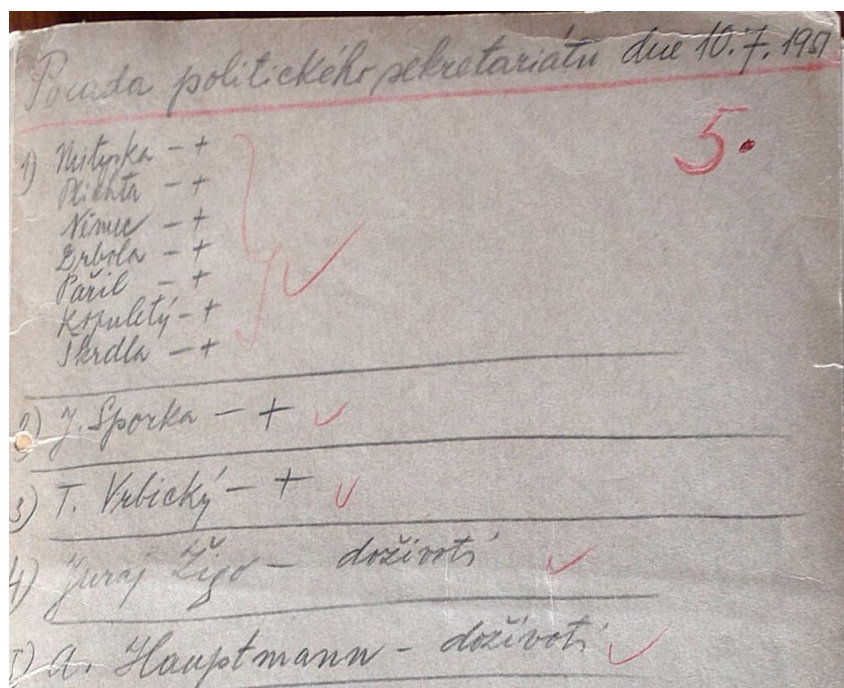 Porada politického sekretariátu dne 10.7.1951
5.
1) Mityska - +
Plichta - +
Němec - +
Drbola - +
Pařil - +
Kopuletý - +
Škrdla - +
2) J. Sporka - +
3) T. Vrbický - +
4) Juraj Žigo - doživotí
5) A. Hauptmann - doživotí